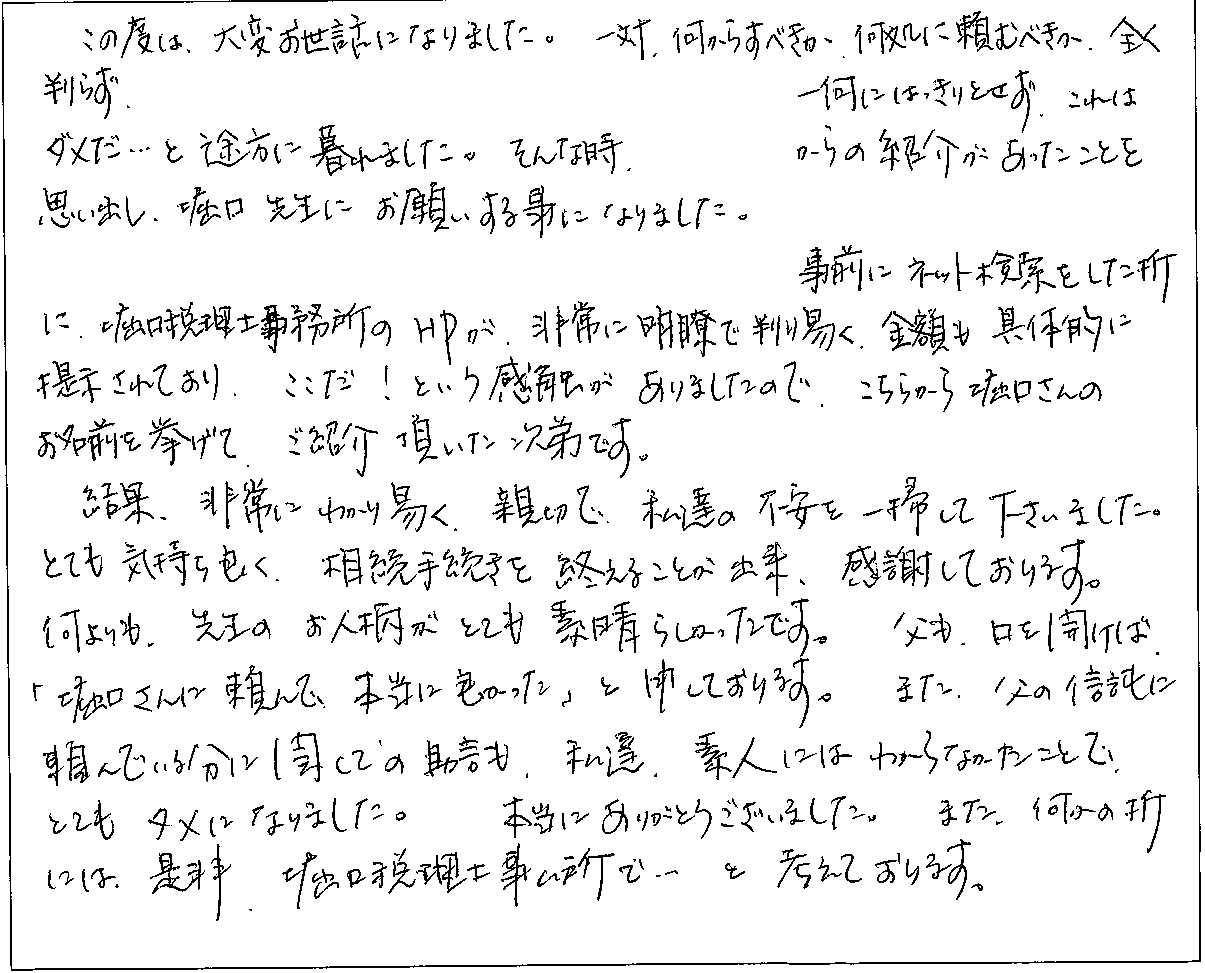 この度は、大変お世話になりました。 一対、何からすべきか、何処に頼むべきか、全く
判らず、 一何にはっきりとせず、これは
ダメだ…と途方に暮れました。そんな時、 からの紹介があったことを
思い出し、堀口先生にお願いする事になりました。
事前にネット検索をした所
に、堀口税理士事務所のHPが、非常に明瞭で判り易く、金額も具体的に
提示されており、ここだ!という感触がありましたので、こちらから堀口さんの
お名前を挙げて、ご紹介頂いた次第です。
結果、非常にわかり易く、親切で、私達の不安を一掃して下さいました。
とても気持ち良く、相続手続きを終えることが出来、感謝しております。
何よりも、先生のお人柄がとても素晴らしかったです。 父も、口を開けば、
「堀口さんに頼んで、本当に良かった」と申しております。 また、父の信託に
頼んでいる分に関しての助言も、私達、素人にはわからなかったことで、
とてもタメになりました。 本当にありがとうございました。 また、何かの折
には、是非、堀口税理士事ム所で…と考えております。